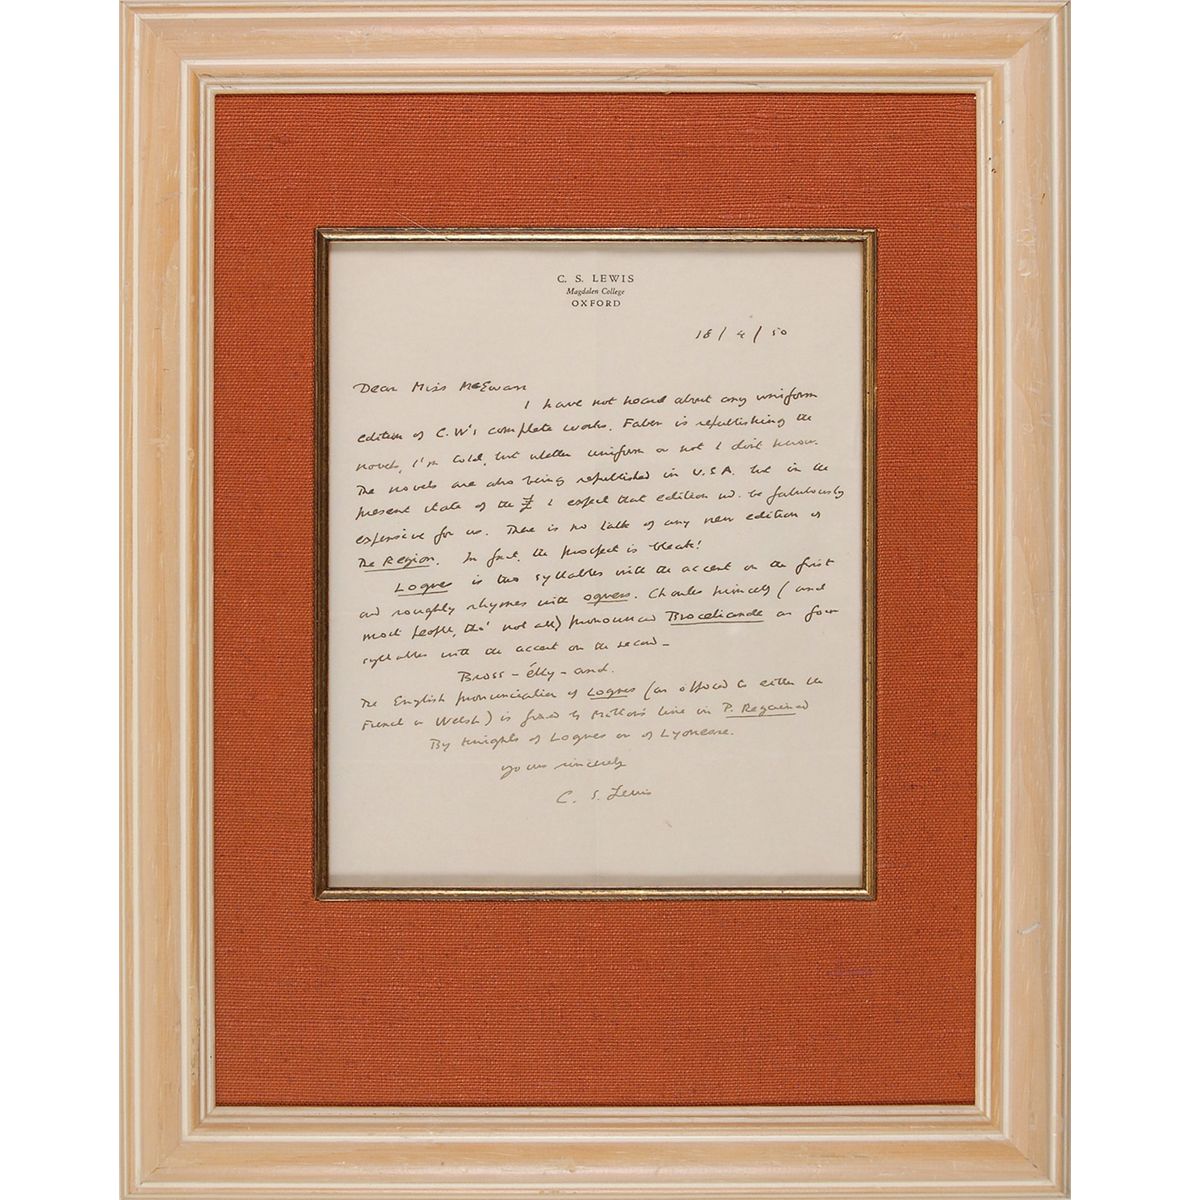 C. S. LEWIS
Magdalen College
OXFORD
18/4/50
Dear Miss McEwan
I have not heard about any uniform
edition of C.W's complete works. Faber is republishing the
novels, I'm told, but whether uniform or not I don't know.
The novels are also being republished in U.S.A. but in the
present state of the £ I expect that edition wd. be fabulously
expensive for us. There is no talk of any new edition of
The Region. In fact, the prospect is bleak!
Logres is two syllables with the accent on the first
and roughly rhymes with ogress. Charles himself (and
most people, tho' not all) pronounced Broceliande as four
syllables with the accent on the second –
Bross – élly – and.
The English pronunciation of Logres (as opposed to either the
French or Welsh) is fixed by Milton's line in P. Regained
By Knights of Logres or of Lyonesse.
yours sincerely
C. S. Lewis